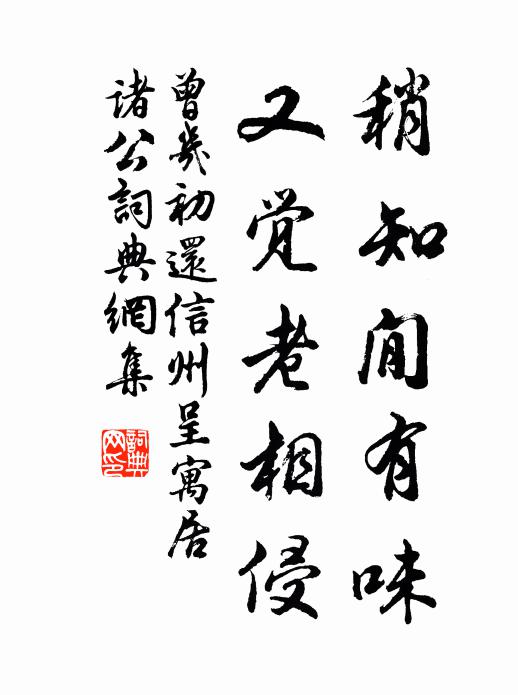 稍知閒有味
又觉老相侵
曾幾初還信州呈寓居
諸公詞典網集
詞典
网印